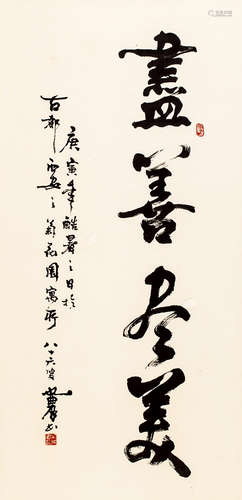 盡善尽美
庚寅年酷暑之日於
古都西安之翁花園寓所
八十六叟